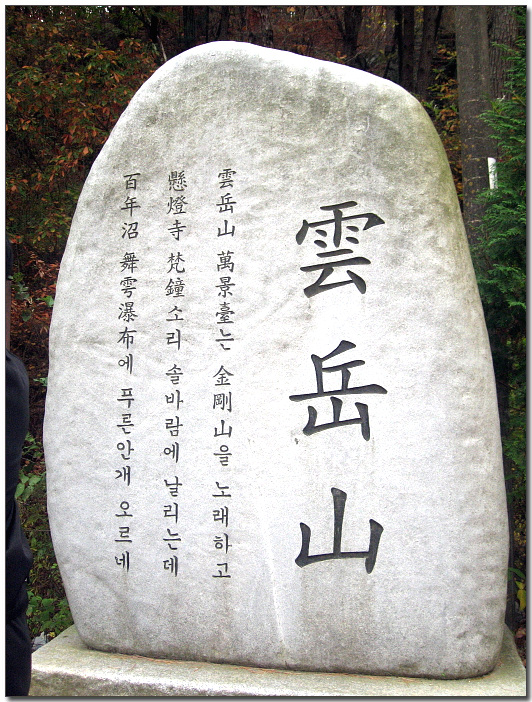 雲岳山
雲岳山 萬景臺는 金剛山을 노래하고
懸燈寺 梵鐘소리 솔바람에 날리는데
百年沼 舞雩瀑布에 푸른안개 오르네